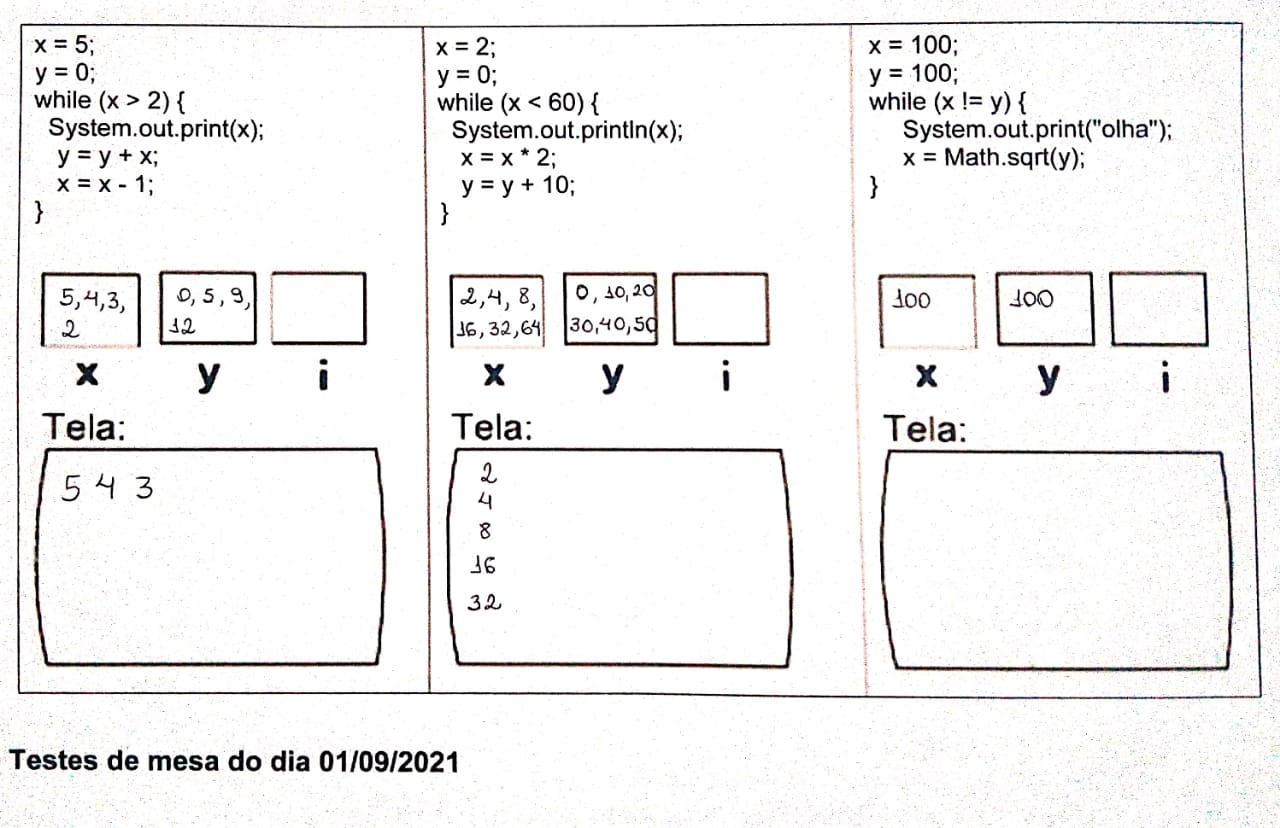 x = 5;
y = 0;
while (x > 2) {
System.out.print(x);
y = y + x;
x = x - 1;
}
5,4,3,
2
0,5,9,
12
x y i
Tela:
5 4 3
x = 2;
y = 0;
while (x < 60) {
System.out.println(x);
x = x * 2;
y = y + 10;
}
2,4,8,
16,32,64
0,10,20
30,40,50
x y i
Tela:
2
4
8
16
32
x = 100;
y = 100;
while (x != y) {
System.out.print("olha");
x = Math.sqrt(y);
}
100
100
x y i
Tela:
Testes de mesa do dia 01/09/2021